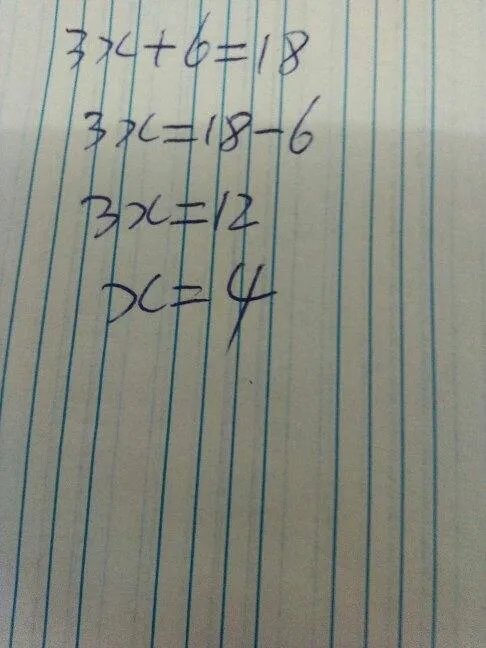 3x+6=18
3x=18-6
3x=12
x=4